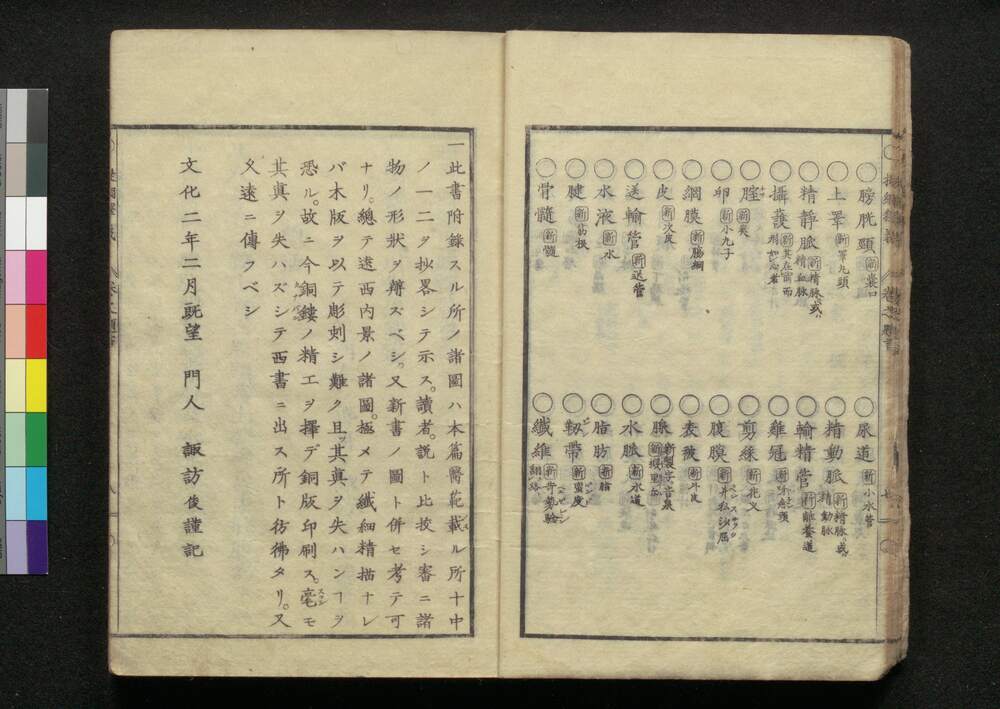 ○膀胱頸 新 嚢口
○上睾 新 睾丸頭
○精静脈 新 精脈。或。精血脈
○攝護 新 其在前而
○腟 新 莢
○卵 新 小丸子
○網膜 新 腸網
○皮 新 次皮
○送輸管 新 送管
○水液 新 水
○腱 新 筋根
○骨髓 新 髓
○尿道 新 小水管
○精動脈 新 精脈。或。精動脈
○輸精管 新 離養道
○雞冠 新
○剪綵 新 花文
○腹膜 新
○表被 新 外皮
○腺 新製字音泉
○水脈 新 水道
○脂肪 新 脂
○靱帶 新 蛮度
○纖維 細絲 新
一此書附錄スル所ノ諸圖ハ本篇醫範載ル所十中
ノ一二ヲ抄畧シテ示ス。讀者。說ト比挍シ審ニ諸
物ノ形狀ヲ辨ズベシ。又新書ノ圖ト併セ考テ可
ナリ。總テ遠西内景ノ諸圖。極メテ纖細精描ナレ
バ木版ヲ以テ彫刺シ難ク且ッ其眞ヲ失ハンヿヲ
恐ル。故ニ今銅鏤ノ精工ヲ擇デ銅版印刷ス。毫モ
其眞ヲ失ハズシテ西書ニ出ス所ト彷彿タリ。又
久遠ニ傳フベシ
文化二年二月既望 門人 諏訪俊謹記